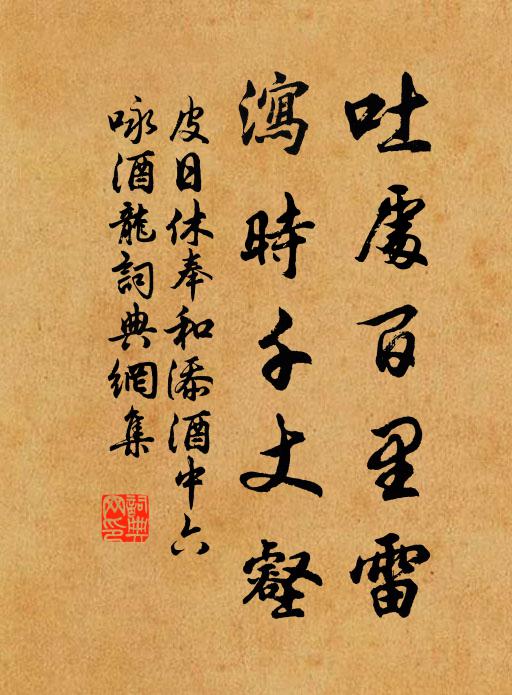 吐處百里雷
瀉時千丈壑
皮日休奉和添酒中六
咏酒龍詞典網集
詞典
网印